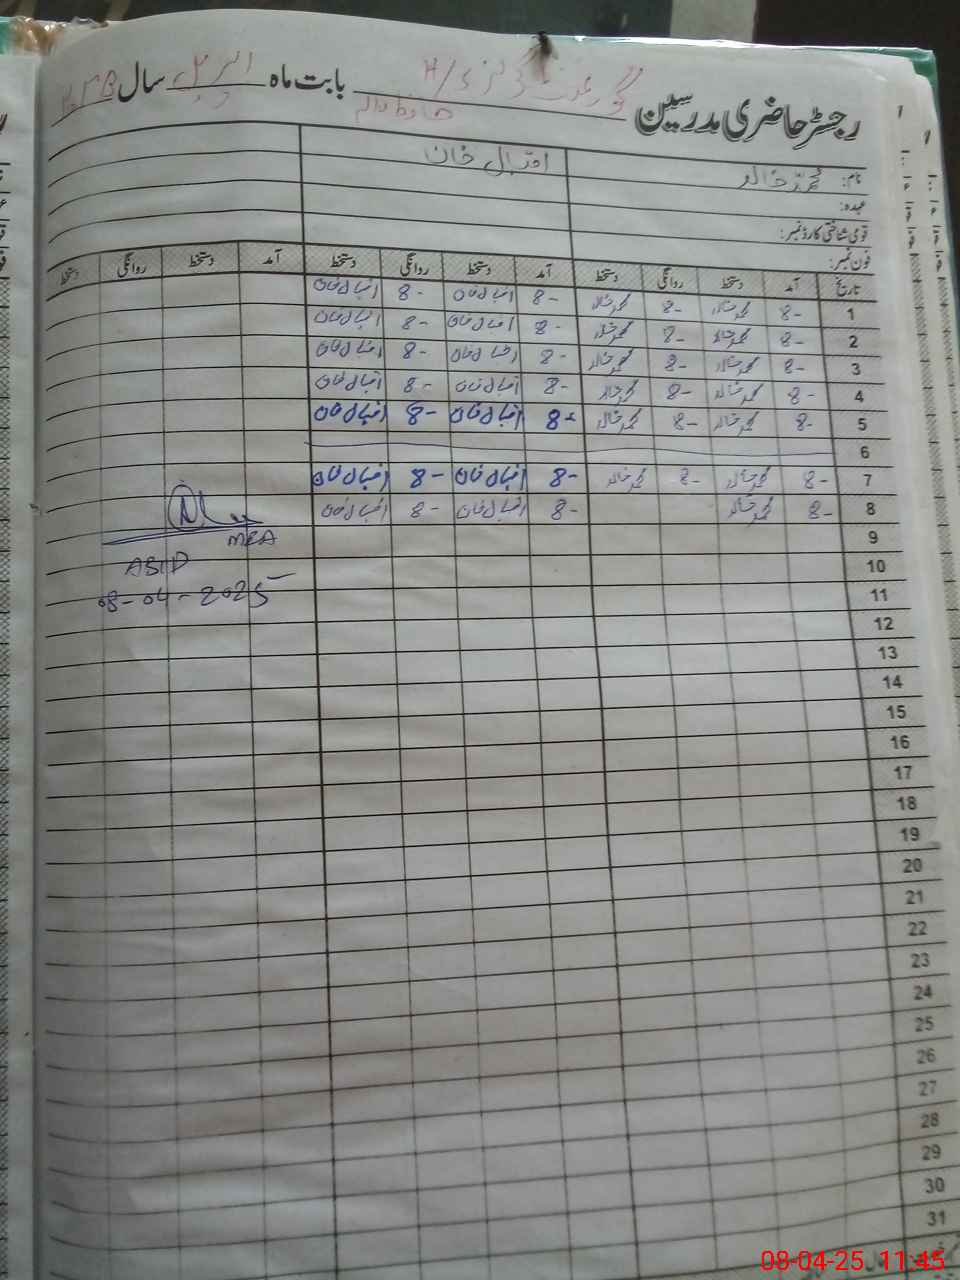 رجسٹر حاضری مدرسین گورنمنٹ گرلز H/S بابت ماہ اپریل سال
نام: محمد خالد اقبال خان
عہدہ:
قومی شناختی کارڈ نمبر:
فون نمبر:
تاریخ آمد دستخط روانگی دستخط آمد دستخط روانگی دستخط آمد دستخط روانگی دستخط
1 8- محمد خالد 8- محمد خالد 8- اقبال خان 8- اقبال خان
2 8- محمد خالد 8- محمد خالد 8- اقبال خان 8- اقبال خان
3 8- محمد خالد 8- محمد خالد 8- اقبال خان 8- اقبال خان
4 8- محمد خالد 8- محمد خالد 8- اقبال خان 8- اقبال خان
5 8- محمد خالد 8- محمد خالد 8- اقبال خان 8- اقبال خان
6
7 8- محمد خالد 8- محمد خالد 8- اقبال خان 8- اقبال خان
8 8- محمد خالد 8- اقبال خان 8- اقبال خان
9
MEA
10
ABID
11
08-04-2025
12
13
14
15
16
17
18
19
20
21
22
23
24
25
26
27
28
29
30
31
08-04-25 11:45